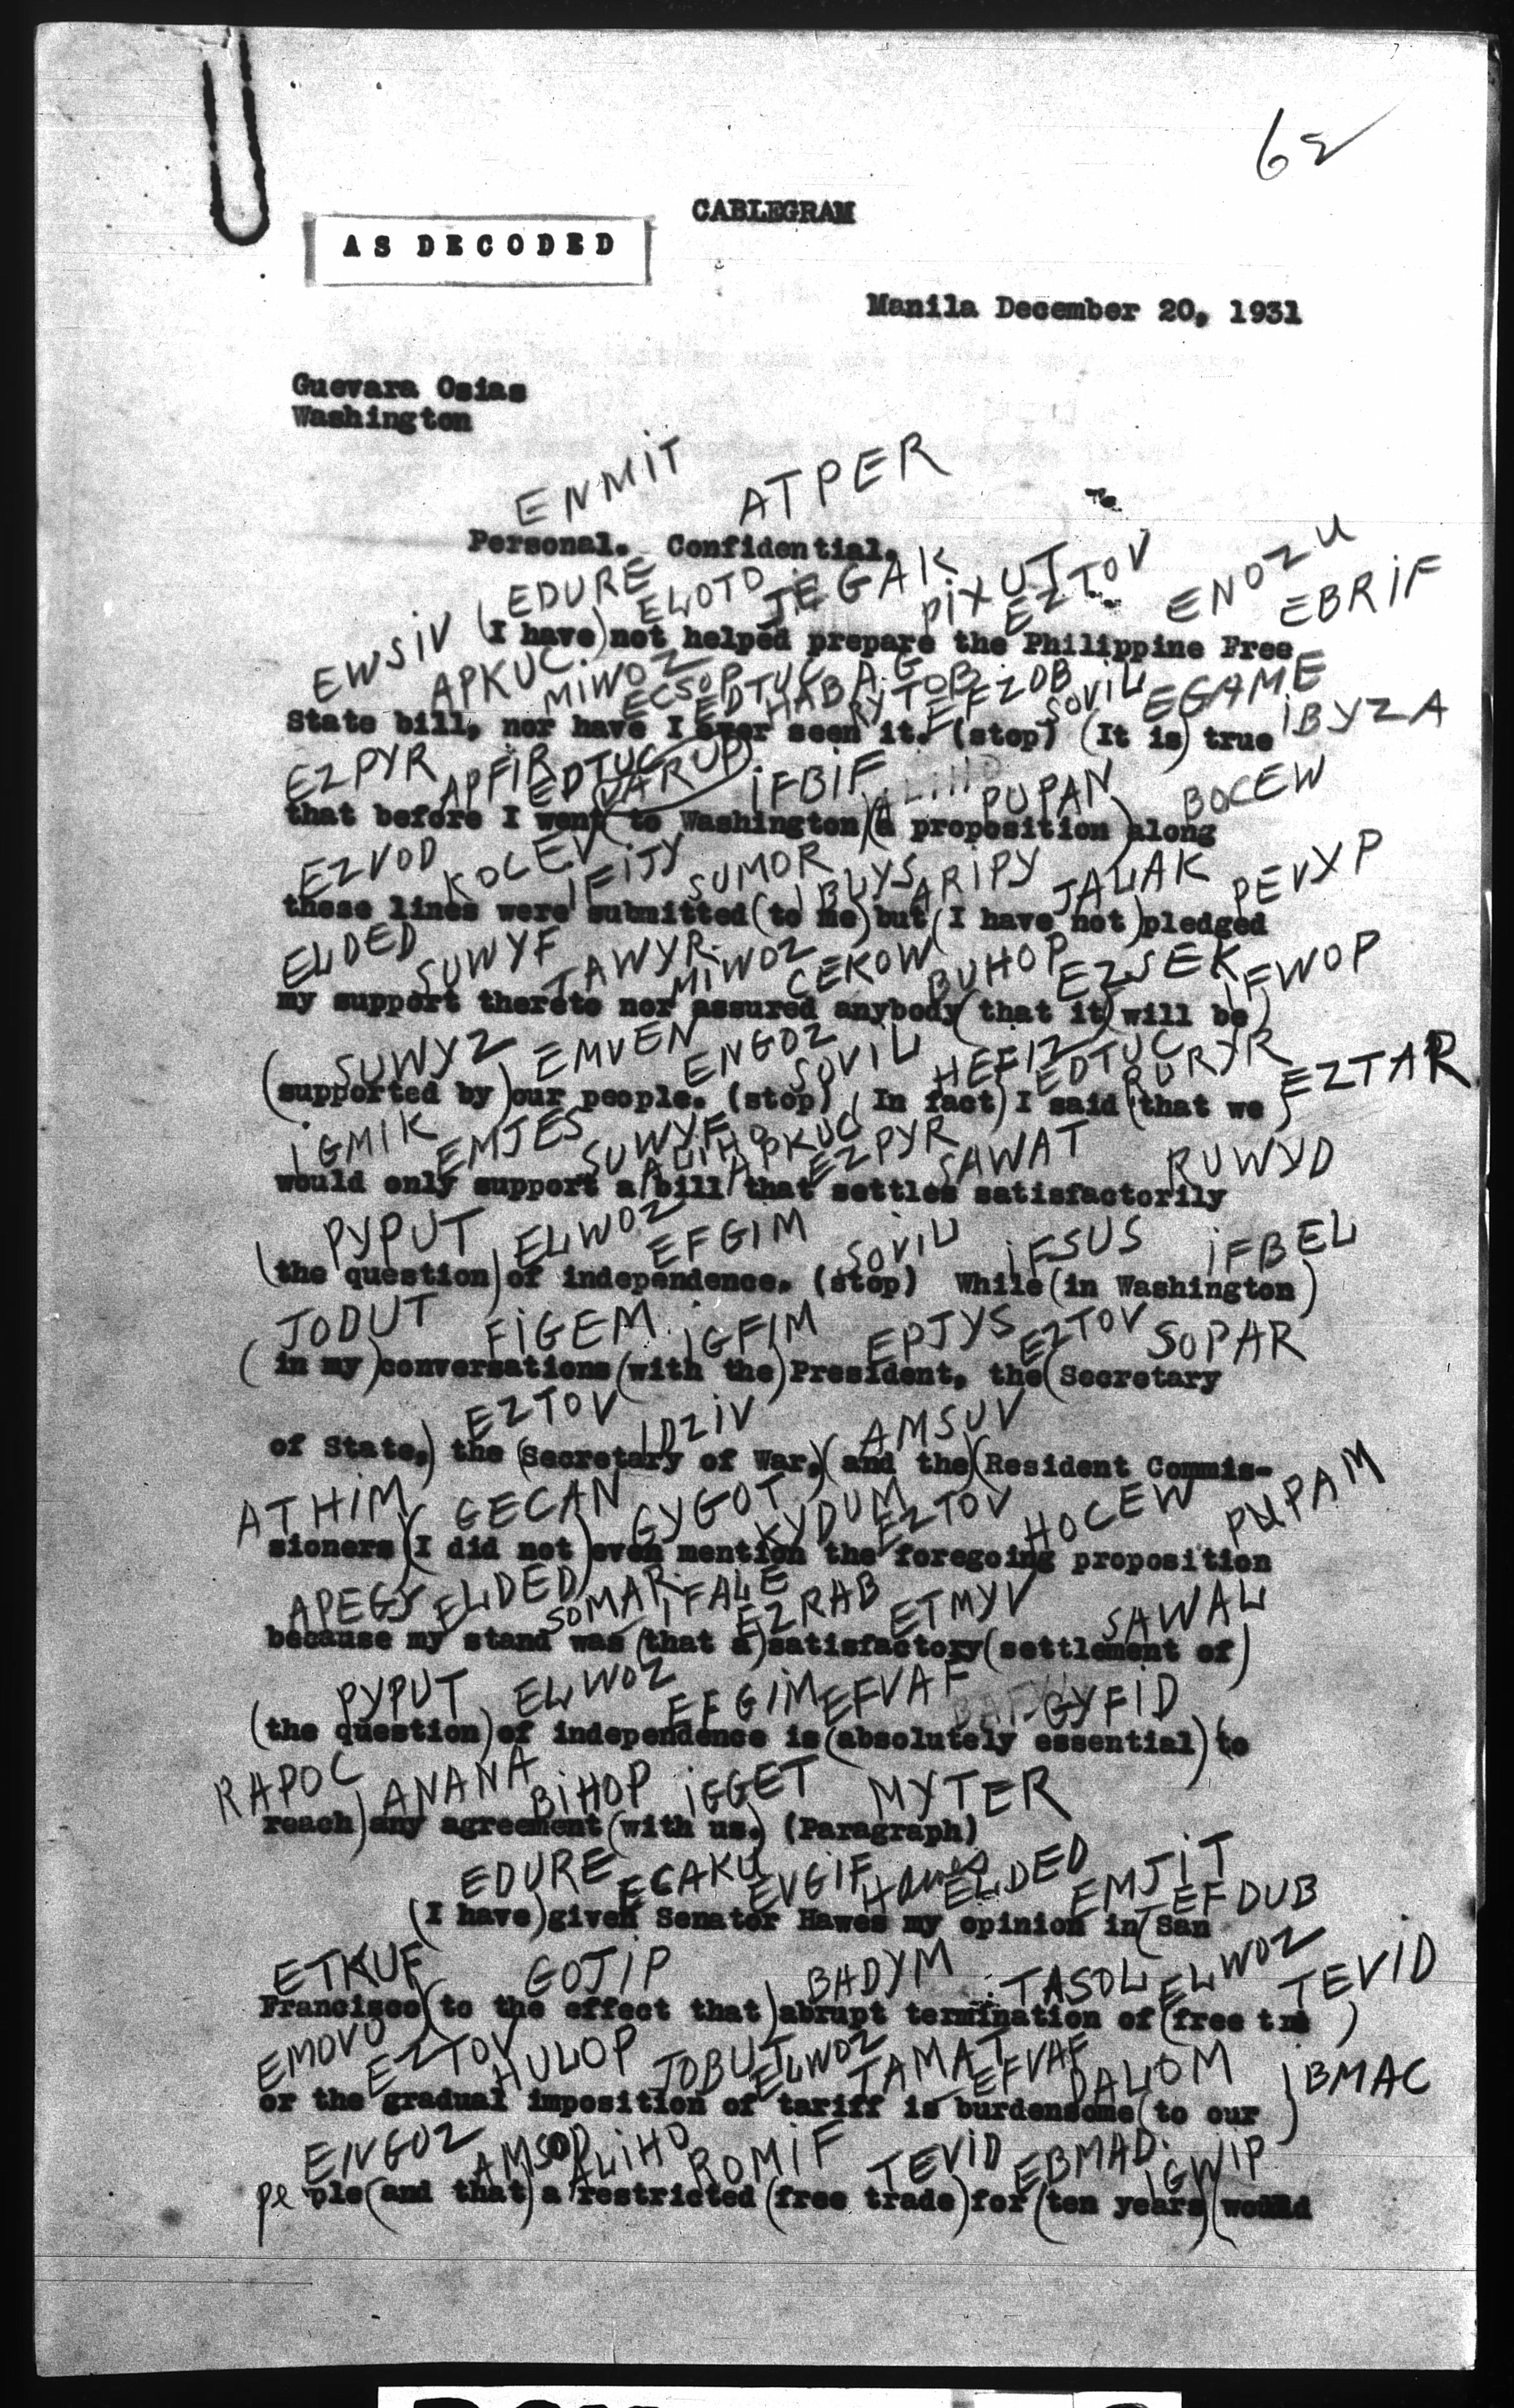 62
CABLEGRAM
AS DECODED
Manila December 20, 1931
Guevara Osias
Washington
ENMIT ATPER
Personal. Confidential.
EDURE ELOTO JEGAK PIXUT EZTOV ENOZU EBRIF
(I have) not helped prepare the Philippine Free
EWSIV APKUC MIWOZ ECSOP EDTUC HABAG RYTOB EFEZOB SOVIL EGAME IBYZA
State bill, nor have I ever seen it. (stop) (It is) true
EZPYR APFIR EDTUC VARUB IFBIF ALIHO PUPAN BOCEW
that before I went (to Washington) (a proposition) along
EZVOD KOCEV IFIJY SUMOR IBLYS ARIPY JALAK PEVXP
these lines were submitted (to me) but (I have not) pledged
ELDED SUWYF TAWYR MIWOZ CEKOW BUHOP EZSEK IFWOP
my support thereto nor assured anybody (that it) will be)
SUWYZ EMVEN ENGOZ SOVIL HEFIZ EDTUC RURYR EZTAR
(supported by) our people. (stop) (In fact) I said (that we)
IGMIK EMJES SUWYF ALIHO APKUC EZPYR SAWAT RUWYD
would only support a bill that settles satisfactorily
PYPUT ELWOZ EFGIM SOVIL IFSUS IFBEL
(the question) of independence. (stop) While (in Washington)
JODUT FIGEM IGFIM EPJYS EZTOV SOPAR
(in my) conversations (with the) President, the (Secretary
EZTOV IDZIV AMSUV
of State,) the (Secretary of War,) (and the) (Resident Commis-
ATHIM GECAN GYGOT KYDUM EZTOV HOCEW PUPAM
sioners) (I did not) even mention the foregoing proposition
APEGY ELDED SOMAR IFALE EZRAB ETMYV SAWAL
because my stand was (that a) satisfactory (settlement of)
PYPUT ELWOZ EFGIM EFVAF GYFID
(the question) of independence is (absolutely essential) (to
RAPOC ANANA BIHOP IGGET MYTER
reach) any agreement (with us.) (Paragraph)
EDURE ECAKU EVGIF Hawes ELDED EMJIT EFDUB
(I have) given Senator Hawes my opinion in (San
ETKUF GOJIP BADYM TASOL ELWOZ TEVID
Francisco) (to the effect that) abrupt termination of (free tra )
EMOVU EZTOV HULOP JOBUT ELWOZ TAMAT EFVAF DALOM IBMAC
or the gradual imposition of tariff is burdensome (to our)
ENGOZ AMSOP ALIHO ROMIF TEVID EBMAD IGWIP
people (and that) a restricted (free trade) for (ten years) (would